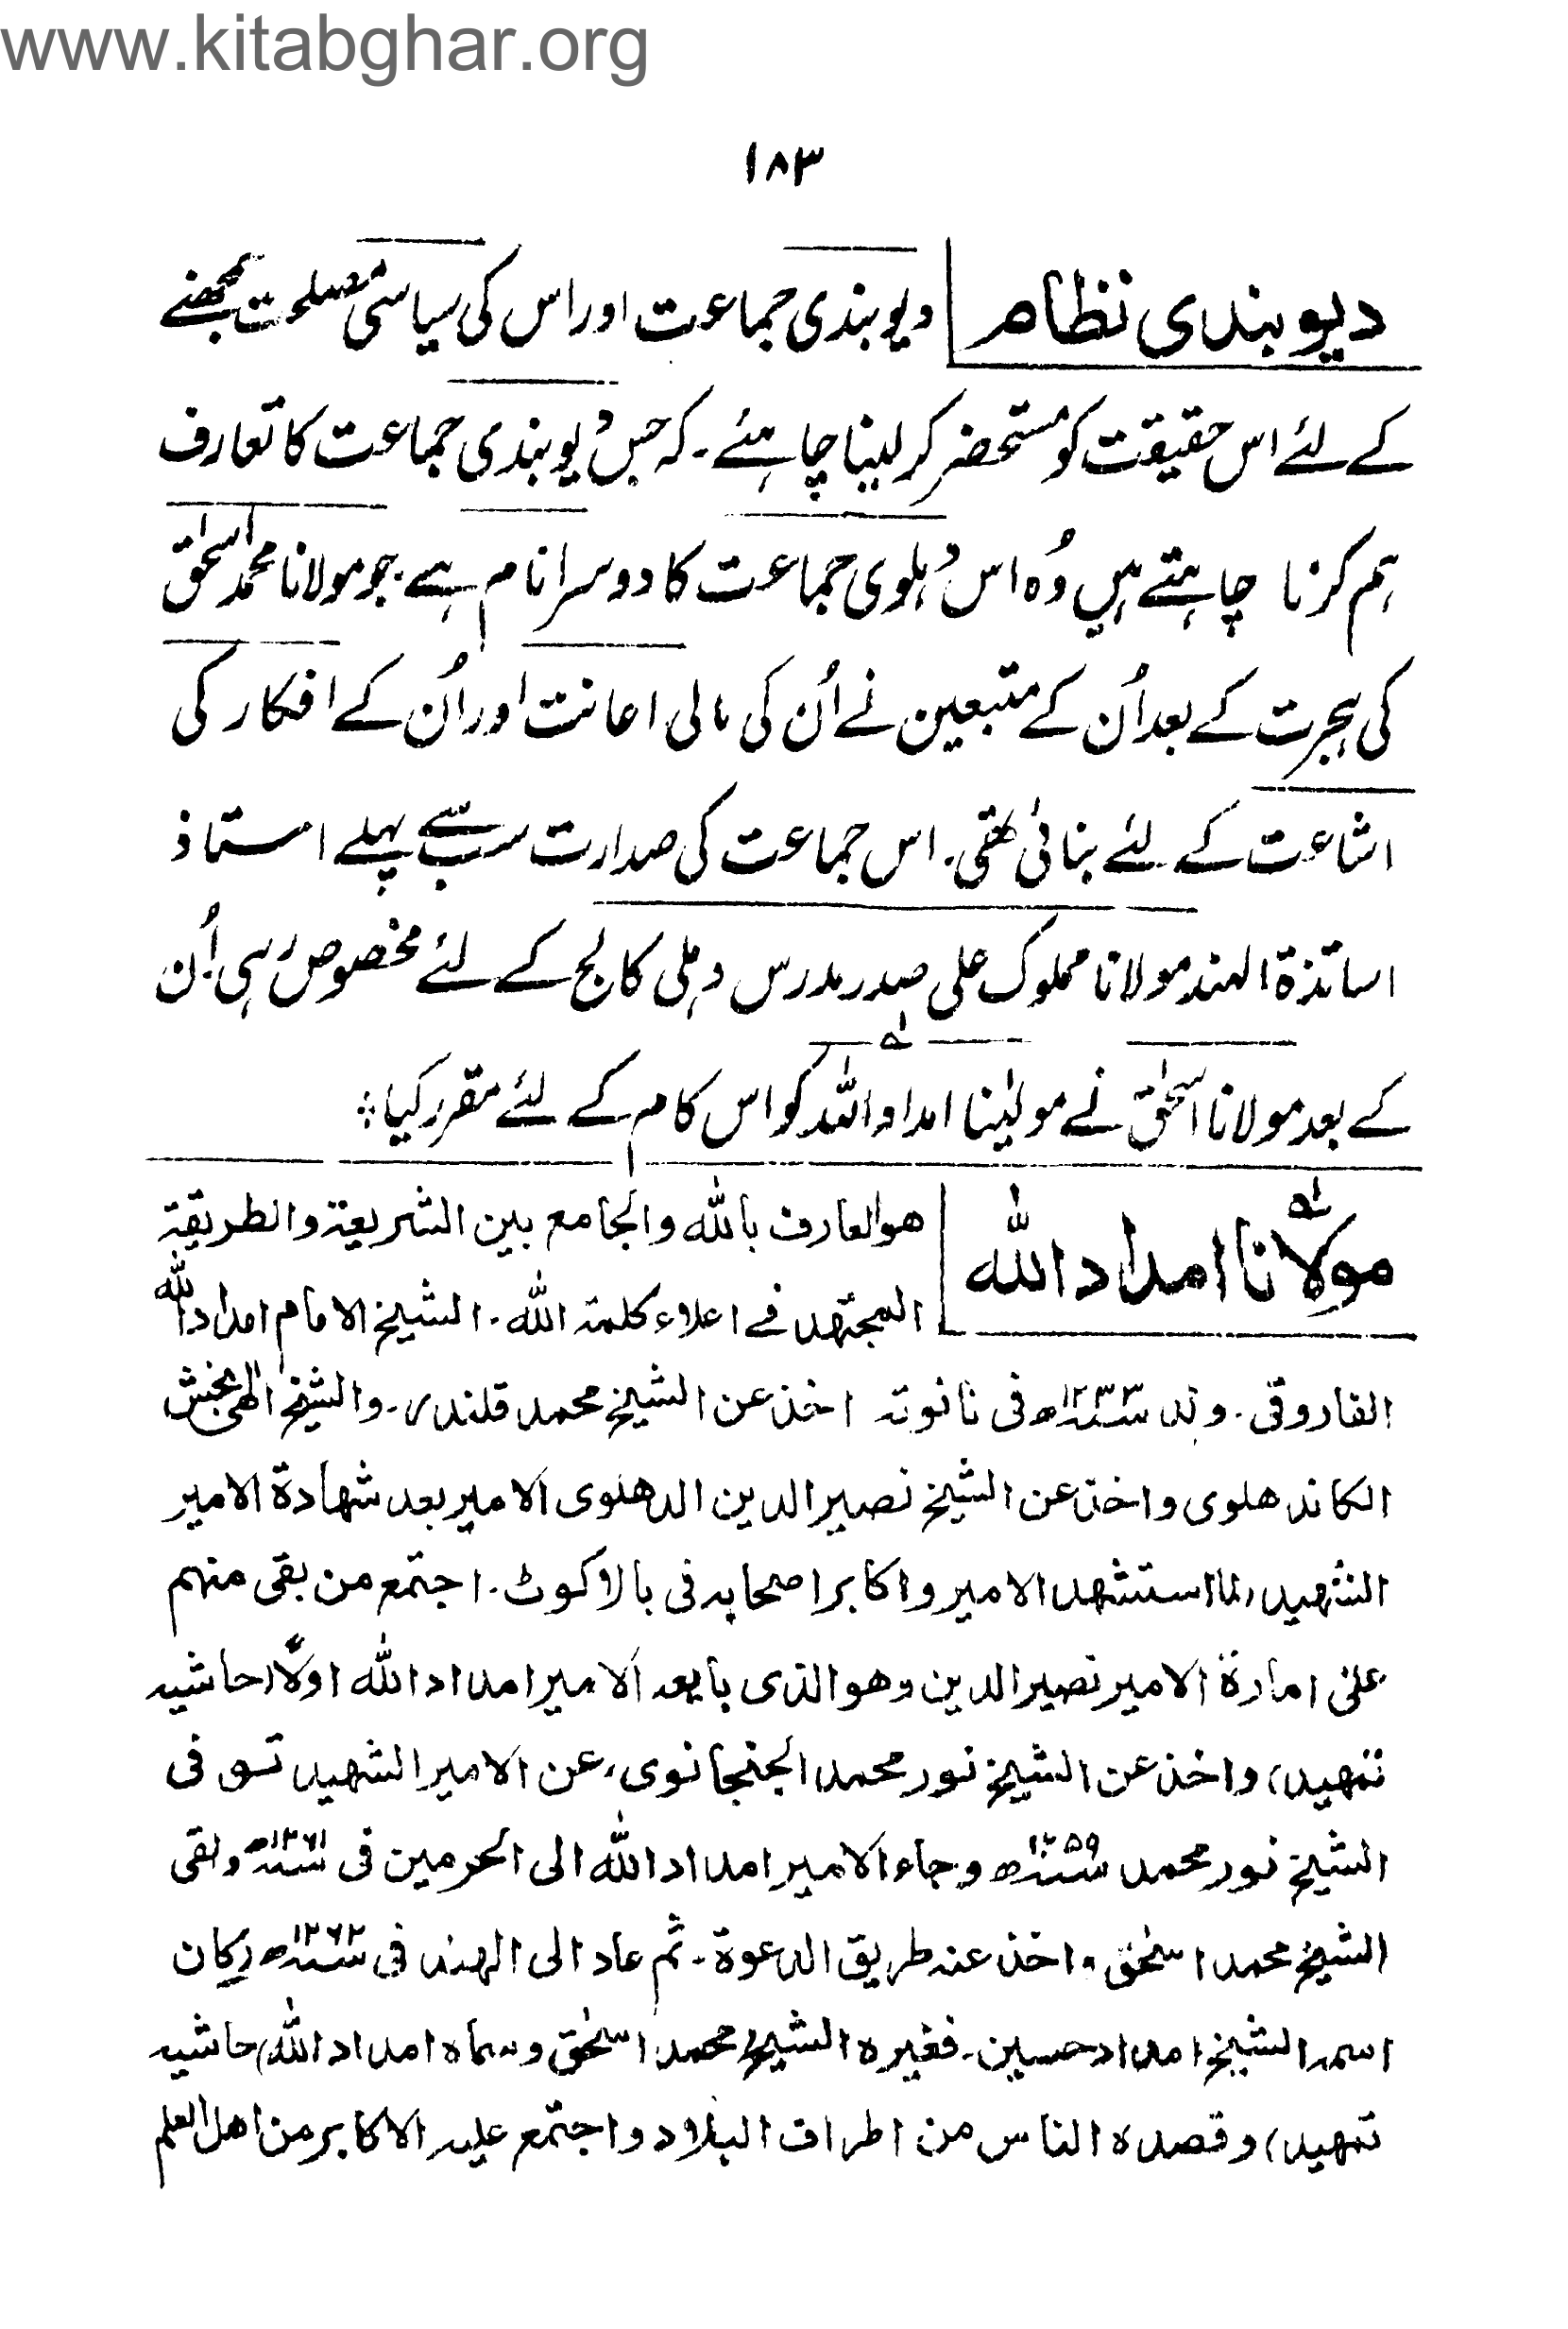 www.kitabghar.org
۱۸۳
دیوبندی نظام | دیوبندی جماعت اور اس کی سیاسی مصلحت سمجھنے
کے لئے اس حقیقت کو مستحضر کر لینا چاہئے۔ کہ جس دیوبندی جماعت کا تعارف
ہم کرنا چاہتے ہیں وُہ اس دہلوی جماعت کا دوسرا نام ہے۔ جو مولانا محمد اسحٰق
کی ہجرت کے بعد اُن کے متبعین نے اُن کی مالی اعانت اور اُن کے افکار کی
اشاعت کے لئے بنائی تھی۔ اس جماعت کی صدارت سب سے پہلے استاذ
اساتذۃ الہند مولانا مملوک علی صدر مدرس دہلی کالج کے لئے مخصوص رہی۔ اُن
کے بعد مولانا اسحٰق نے مولٰینا امداد اللہ لہ کو اس کام کے لئے مقرر کیا؞
لہ مولانا امداد اللہ | ھو العارف باللہ والجامع بین الشریعۃ والطریقۃ
المجتھد فے اعلاء کلمۃ اللہ۔ الشیخ الامام امداد اللہ
الفاروقی۔ ولد ۱۲۳۳ھ فی نانوتہ اخذ عن الشیخ محمد قلندر۔ والشیخ الٰھی بخش
الکاندھلوی واخذ عن الشیخ نصیر الدین الدھلوی الامیر بعد شھادۃ الامیر
الشھید، لما استشھد الامیر واکابر اصحابہ فی بالاکوٹ۔ اجتمع من بقی منھم
علیٰ امارۃ الامیر نصیر الدین وھو الذی بایعہ الامیر امداد اللہ اولًا (حاشیہ
تمھید) واخذ عن الشیخ نور محمد الجنجانوی، عن الامیر الشھید توفی
الشیخ نور محمد ۱۲۵۹ھ وجاء الامیر امداد اللہ الی الحرمین فی ۱۲۶۱ھ ولقی
الشیخ محمد اسحٰق واخذ عنہ طریق الدعوۃ۔ ثم عاد الی الھند فی ۱۲۶۲ھ (کان
اسمہ الشیخ امداد حسین۔ فغیرہ الشیخ محمد اسحٰق وسماہ امداد اللہ) حاشیہ
تمھید) وقصدہ الناس من اطراف البلاد واجتمع علیہ الاکابر من اھل العلم